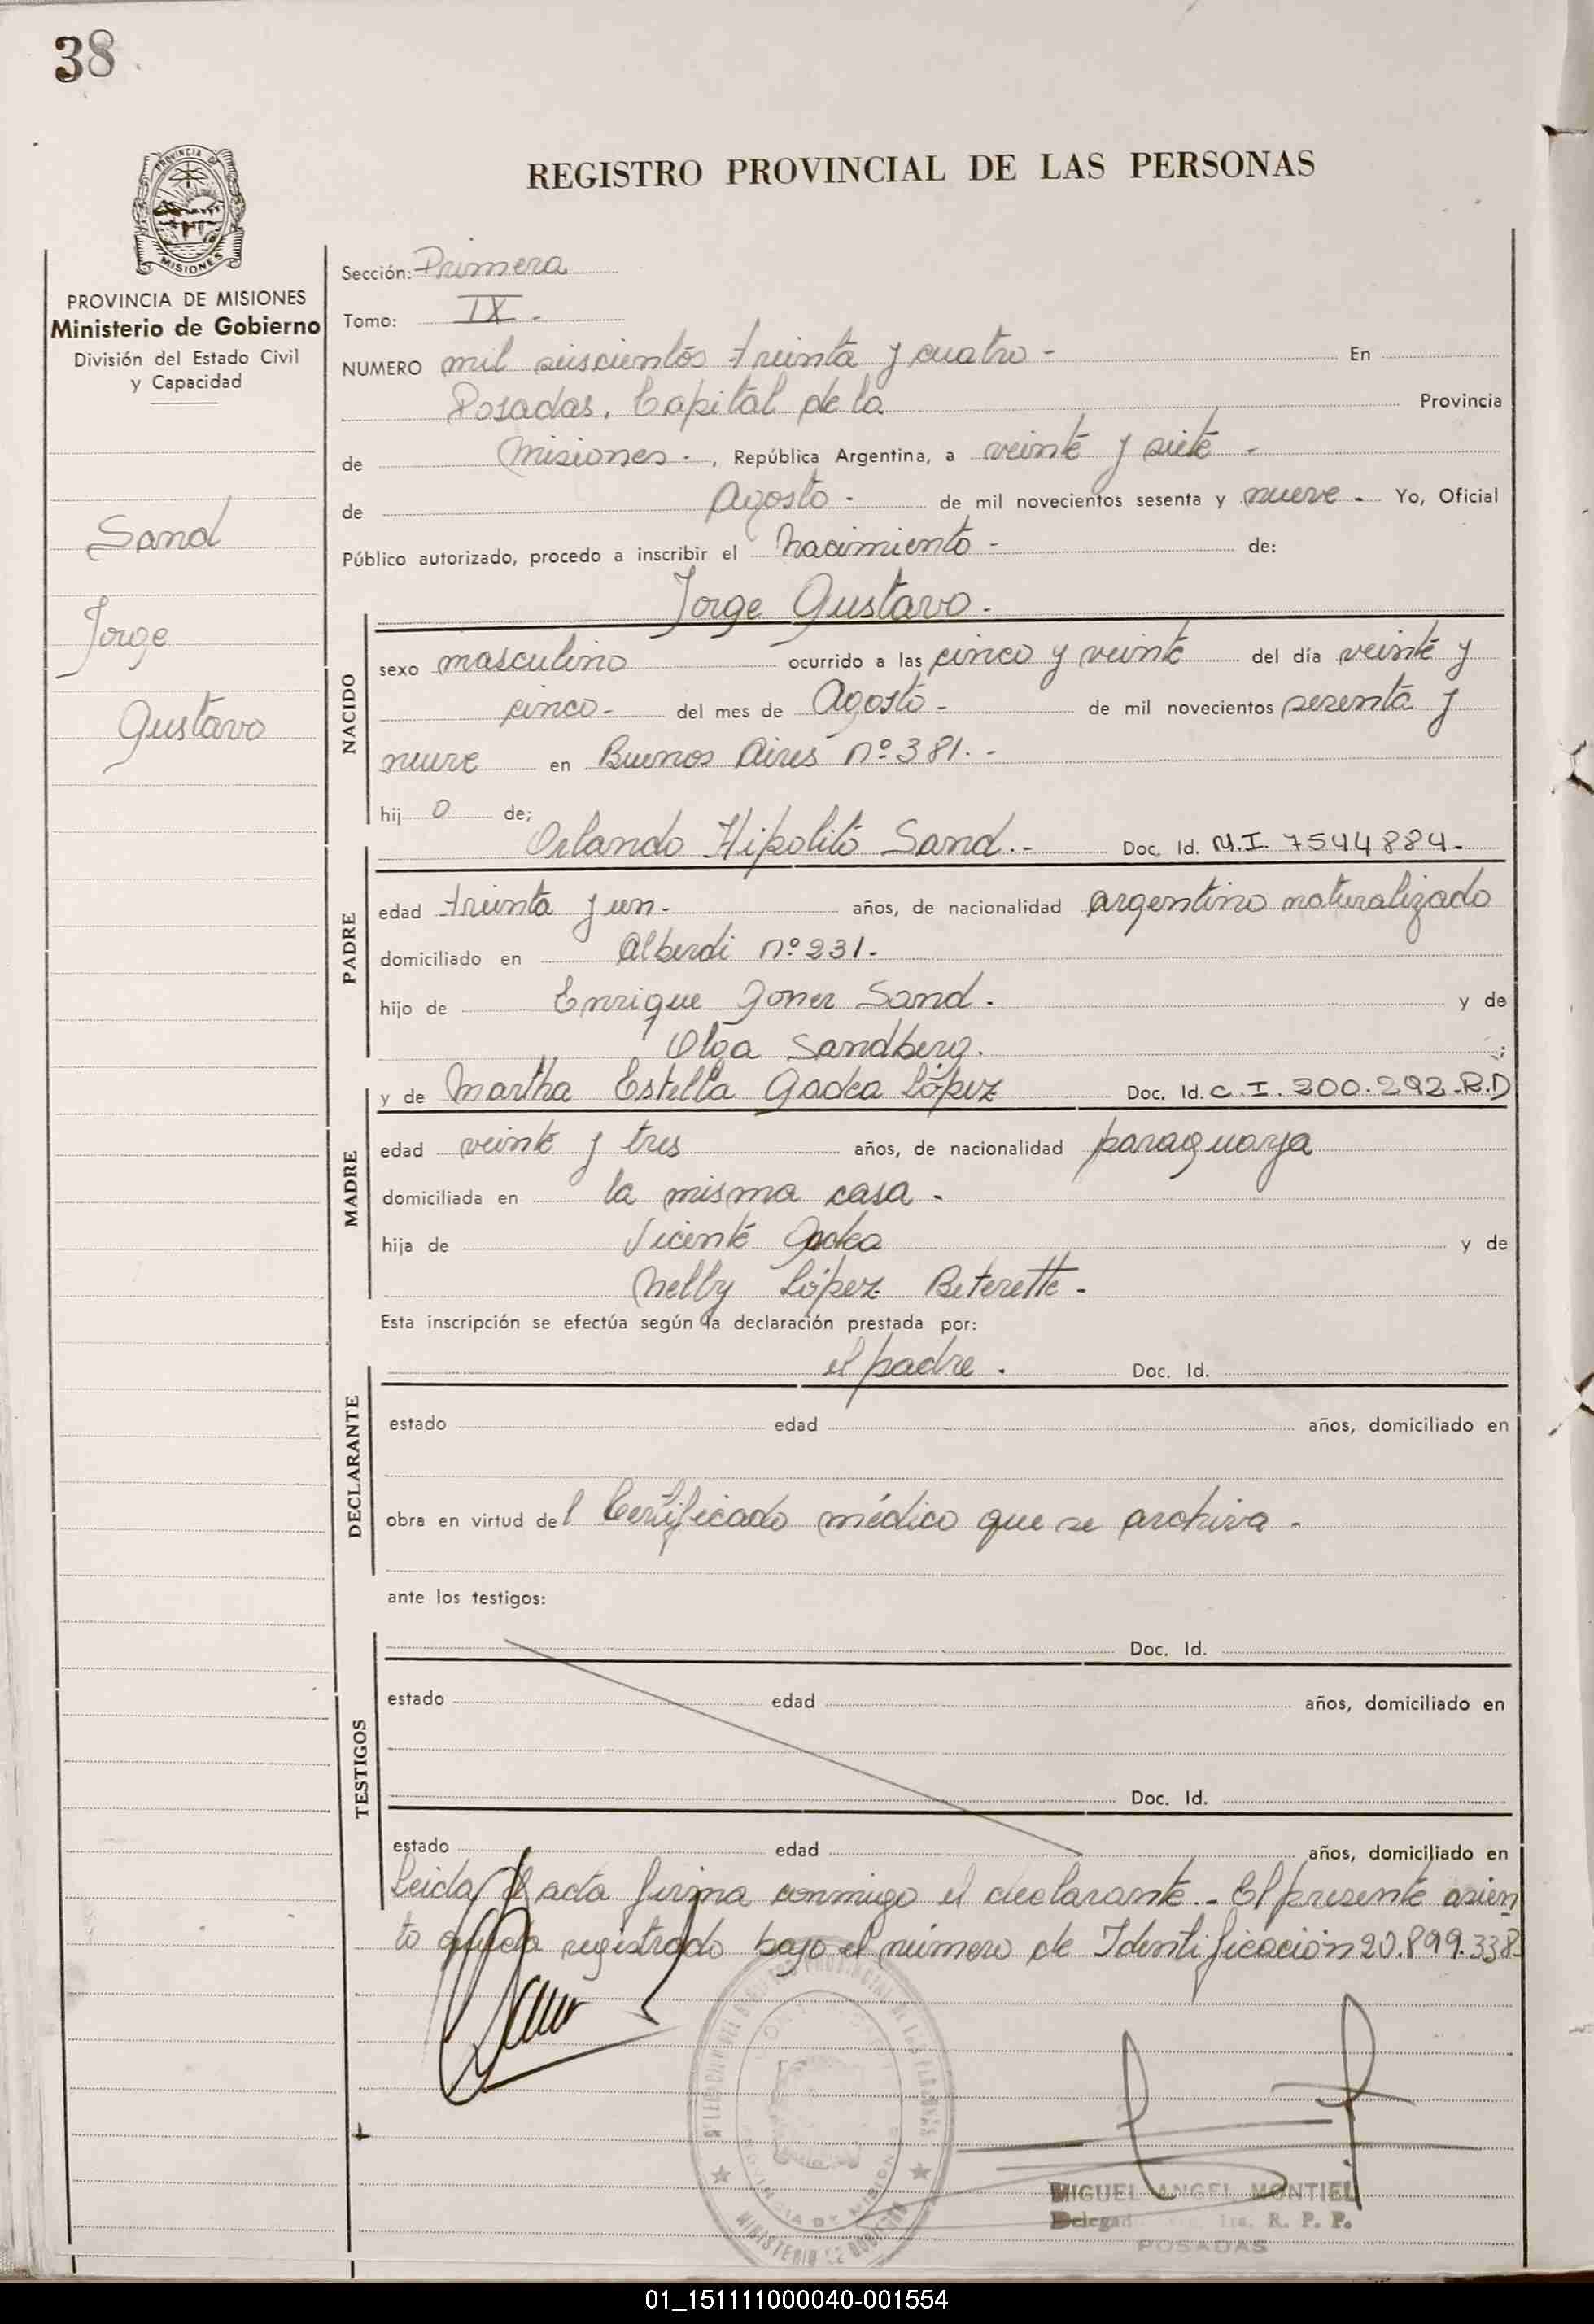 38
REGISTRO PROVINCIAL DE LAS PERSONAS
PROVINCIA DE
MISIONES
PROVINCIA DE MISIONES
Ministerio de Gobierno
División del Estado Civil
y Capacidad
Sand
Jorge
Gustavo
Sección: Primera
Tomo: IX -
NUMERO mil seiscientos treinta y cuatro - En
Posadas, Capital de la Provincia
de Misiones -, República Argentina, a veinte y siete -
de Agosto - de mil novecientos sesenta y nueve - Yo, Oficial
Público autorizado, procedo a inscribir el Nacimiento - de:
Jorge Gustavo -
NACIDO
sexo masculino ocurrido a las cinco y veinte del día veinte y
cinco - del mes de Agosto - de mil novecientos sesenta y
nueve en Buenos Aires nº 381. -
hij o de;
Orlando Hipolito Sand. - Doc. Id. M.I. 7544884-
PADRE
edad treinta y un - años, de nacionalidad argentino naturalizado
domiciliado en Alberdi nº 231 -
hijo de Enrique Joner Sand - y de
Olga Sandberg. ;
y de Martha Estella Gadea López Doc. Id. C.I. 200.292-R.D
MADRE
edad veinte y tres años, de nacionalidad paraguaya
domiciliada en la misma casa -
hija de Vicente Gadea y de
Nelly López Beterette -
Esta inscripción se efectúa según la declaración prestada por:
el padre - Doc. Id.
DECLARANTE
estado edad años, domiciliado en
obra en virtud del Certificado médico que se archiva -
ante los testigos:
Doc. Id.
TESTIGOS
estado edad años, domiciliado en
Doc. Id.
estado edad años, domiciliado en
Leida el acta firma conmigo el declarante - El presente asien
to queda registrado bajo el número de Identificación 20.899.338
MIGUEL ANGEL MONTIEL
R. P. P.
POSADAS
01_151111000040-001554